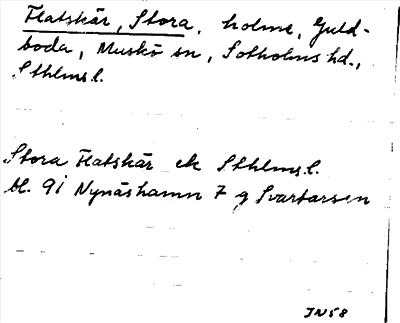 Flatskär, Stora, holme, Guld-
boda, Muskö sn, Sotholms hd.,
Sthlms l.
Stora Flatskär ek Sthlms l.
bl. 9i Nynäshamn 7 g Svartarsen
JN58